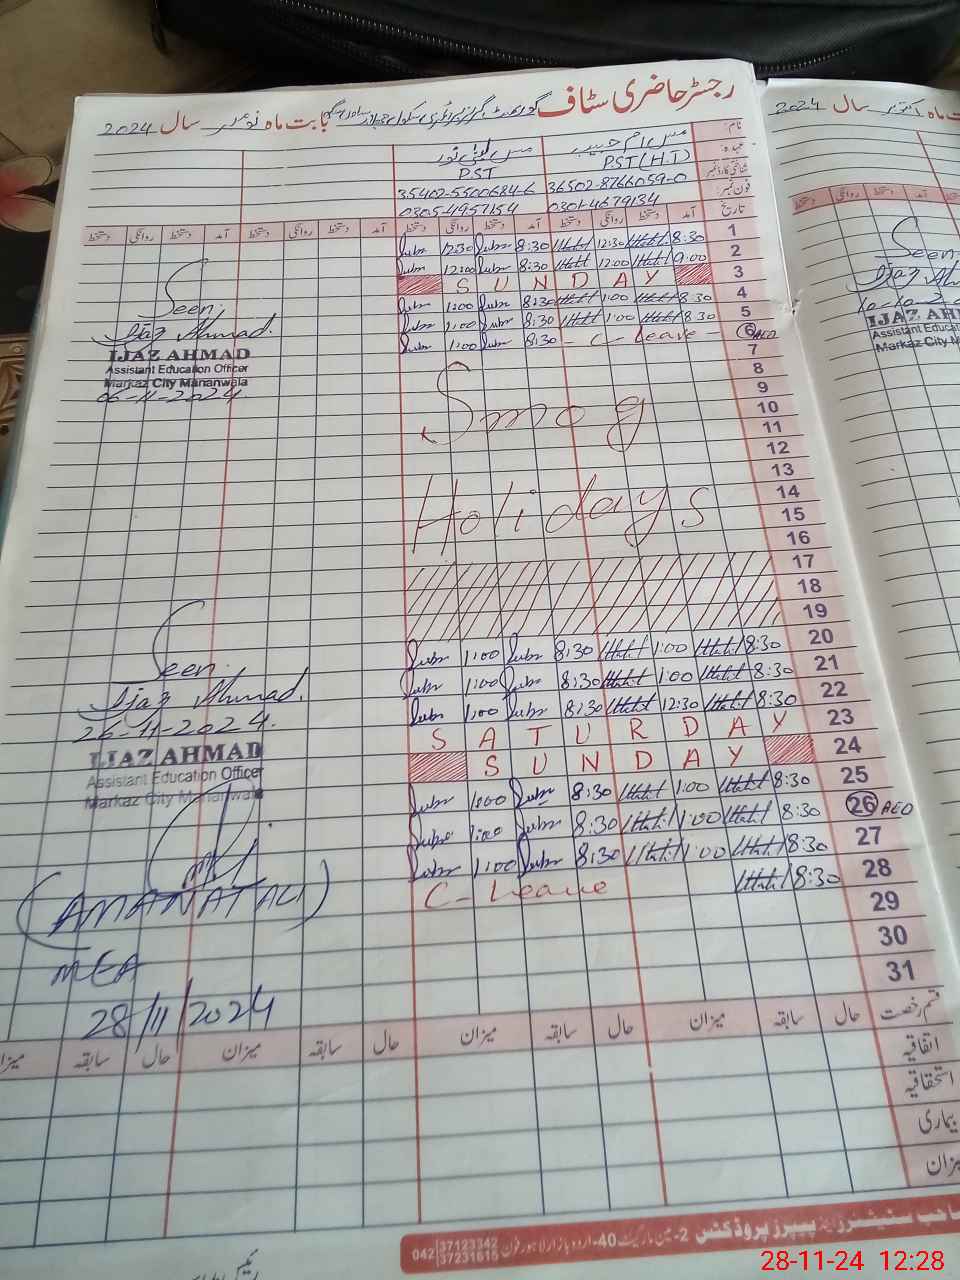 رجسٹر حاضری سٹاف گورنمنٹ گرلز پرائمری سکول بابت ماہ نومبر سال 2024
نام:
مس ام حبیبہ
عہدہ:
PST (H.T)
PST
شناختی کارڈ نمبر
36502-8766059-0
35402-5500684-6
فون نمبر:
0301-4679134
0305-4957154
تاریخ
آمد دستخط روانگی دستخط آمد دستخط روانگی دستخط آمد دستخط روانگی دستخط آمد دستخط روانگی دستخط
1 8:30 12:30 8:30 12:30
2 9:00 12:00 8:30 12:00
3 SUNDAY
4 8:30 1:00 8:30 1:00
5 8:30 1:00 8:30 1:00
6 AEO C-Leave 8:30 1:00
7
8
9
10
11
12
13
14
15
16
Smog
Holidays
17
18
19
20 8:30 1:00 8:30 1:00
21 8:30 1:00 8:30 1:00
22 8:30 12:30 8:30 1:00
23 SATURDAY
24 SUNDAY
25 8:30 1:00 8:30 1:00
26 AEO 8:30 1:00 8:30 1:00
27 8:30 1:00 8:30 1:00
28 8:30 C-Leave
29
30
31
Seen
Ijaz Ahmad.
IJAZ AHMAD
Assistant Education Officer
Markaz City Mananwala
06-11-2024.
Seen.
Ijaz Ahmad.
26-11-2024.
IJAZ AHMAD
Assistant Education Officer
Markaz City Mananwala
(AMANAT ALI)
MEA
28/11/2024
قسم رخصت حال سابقہ میزان حال سابقہ میزان حال سابقہ میزان حال سابقہ میزان
اتفاقیہ
استحقاقیہ
بیماری
میزان
صاحب سٹیشنرز اینڈ پیپرز پروڈکٹس 2-مین مارکیٹ 40-اردو بازار لاہور فون 042 37123342
37231615
ماہ اکتوبر سال 2024
Seen
IJAZ AH
Assistant Educat
28-11-24 12:28